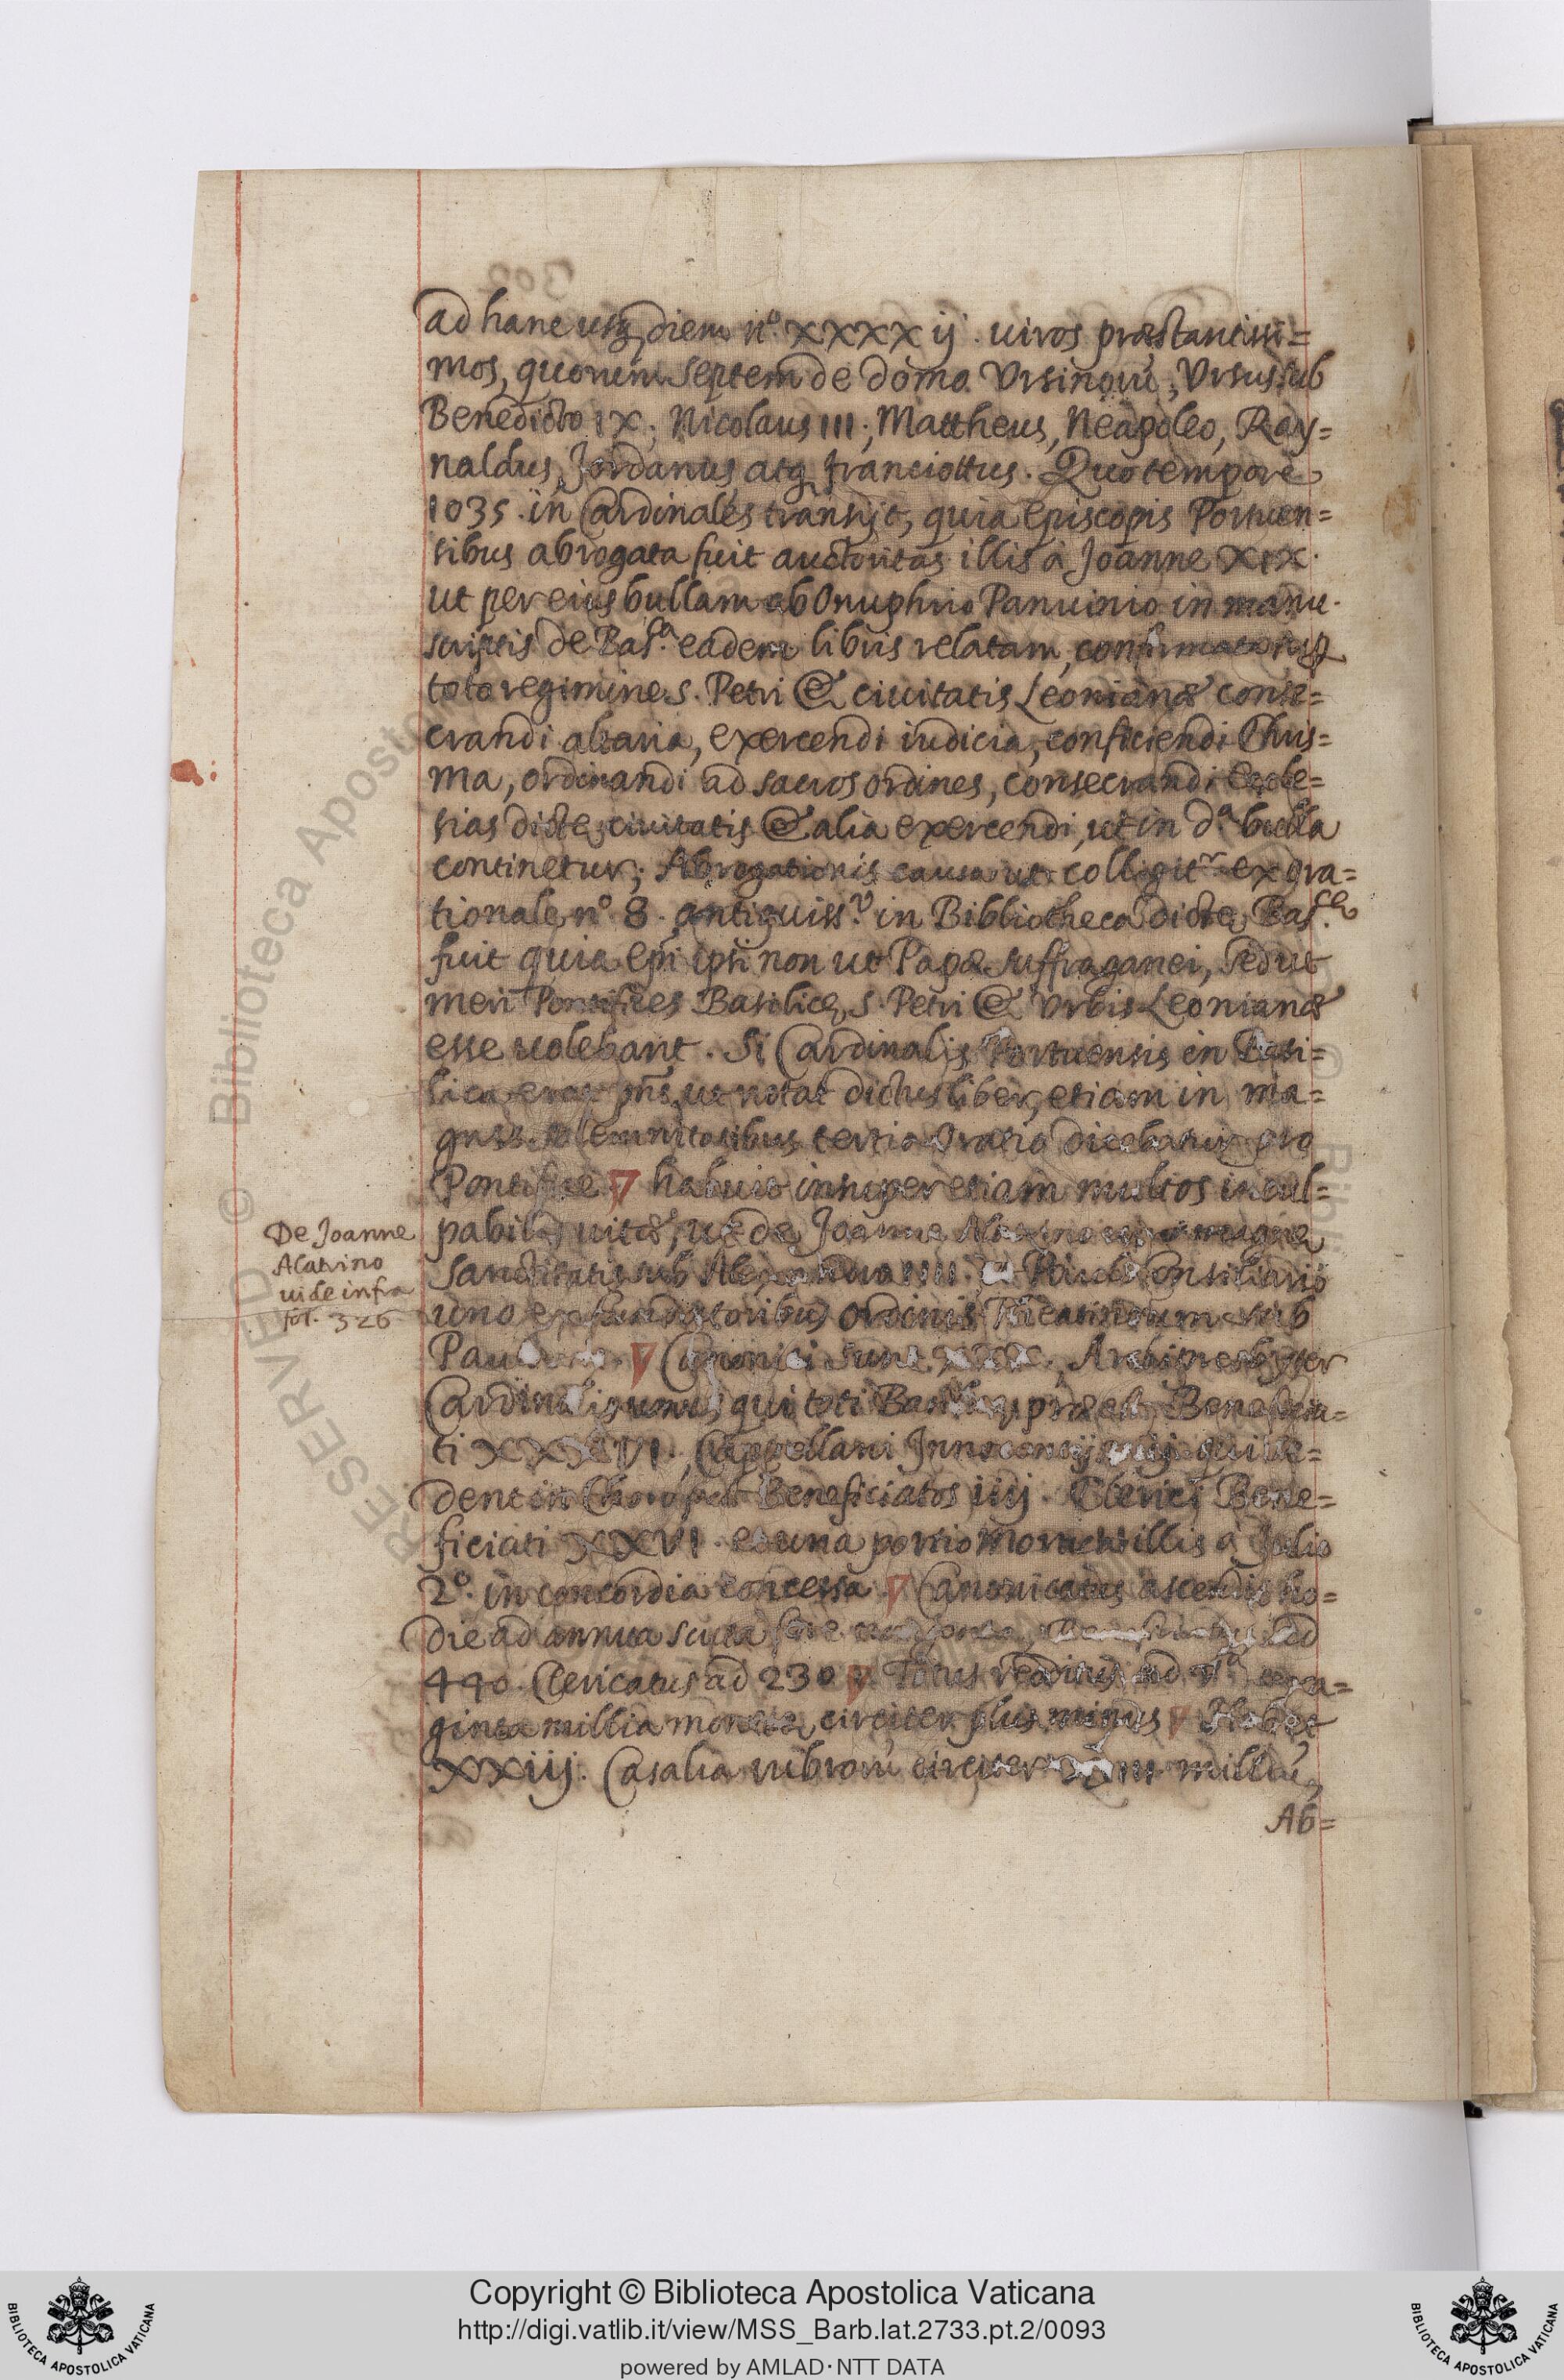 ad hanc usq; diem n.º XXXXij. uiros præstantissi=
mos, quorum septem de domo Vrsinorũ, Vrsus sub
Benedicto IX; Nicolaus III; Mattheus, Neapoleo, Ray=
naldus, Jordanus atq; franciottus. Quo tempore
1035. in Cardinales transijt, quia Episcopis Portuen=
sibus abrogata fuit auctoritas illis à Joanne XIX.
ut per eius bullam ab Onuphrio Panuinio in manu.
scriptis de Bas.ª eadem libris relatam, confirmatoriã
toto regimine S. Petri & ciuitatis Leonianæ conse=
crandi altaria, exercendi iudicia, conficiendi Chris=
ma, ordinandi ad sacros ordines, consecrandi Eccle=
sias dictę ciuitatis & alia exercendi, ut in d.ª bulla
continetur; Abrogationis causa ut colligit.r ex ora=
tionale n.º 8. antiquiss.º in Bibliotheca dictę Bas.cę
fuit quia Epi ipsi non ut Papæ suffraganei, sed ut
meri Pontifices Basilicę S. Petri & Vrbis Leonianæ
esse uolebant. Si Cardinalis Portuensis in Basi=
lica erat pñs, ut notat dictus liber, etiam in ma=
gnis solemnitatibus tertia oratio dicebatur pro
Pontifice habuit insuper etiam multos incul=
pabilis uitæ, ut de Joanne Alatrino uiro magnæ
Sanctitatis sub Alexandro IIII. Paulo Consiliario
uno ex fundatoribus ordinis Theatinorum sub
Canonici sunt XXX. Archipresbyter
Cardinalis unus, qui toti Basilicę præest, Beneficia=
ti XXXVI., Cappellani Innocentij qui se=
dent in Choro post Beneficiatos iiij. Clerici Bene=
ficiati XXVI. et una portio illis à Julio
2.º in concordia concessa. Canonicatus ascendit ho=
die ad annua scuta ad
440. Clericatus ad 230. Totus reditus ad
ginta millia monetę circiter plus minus Habet
XXiij. Casalia rubrorũ circiter milliũ,
Ab=
De Joanne
Alatrino
uide infra
fol. 326
RESERVED © Biblioteca Apostolica
Copyright © Biblioteca Apostolica Vaticana
http://digi.vatlib.it/view/MSS_Barb.lat.2733.pt.2/0093
powered by AMLAD·NTT DATA
BIBLIOTECA APOSTOLICA VATICANA
BIBLIOTECA APOSTOLICA VATICANA